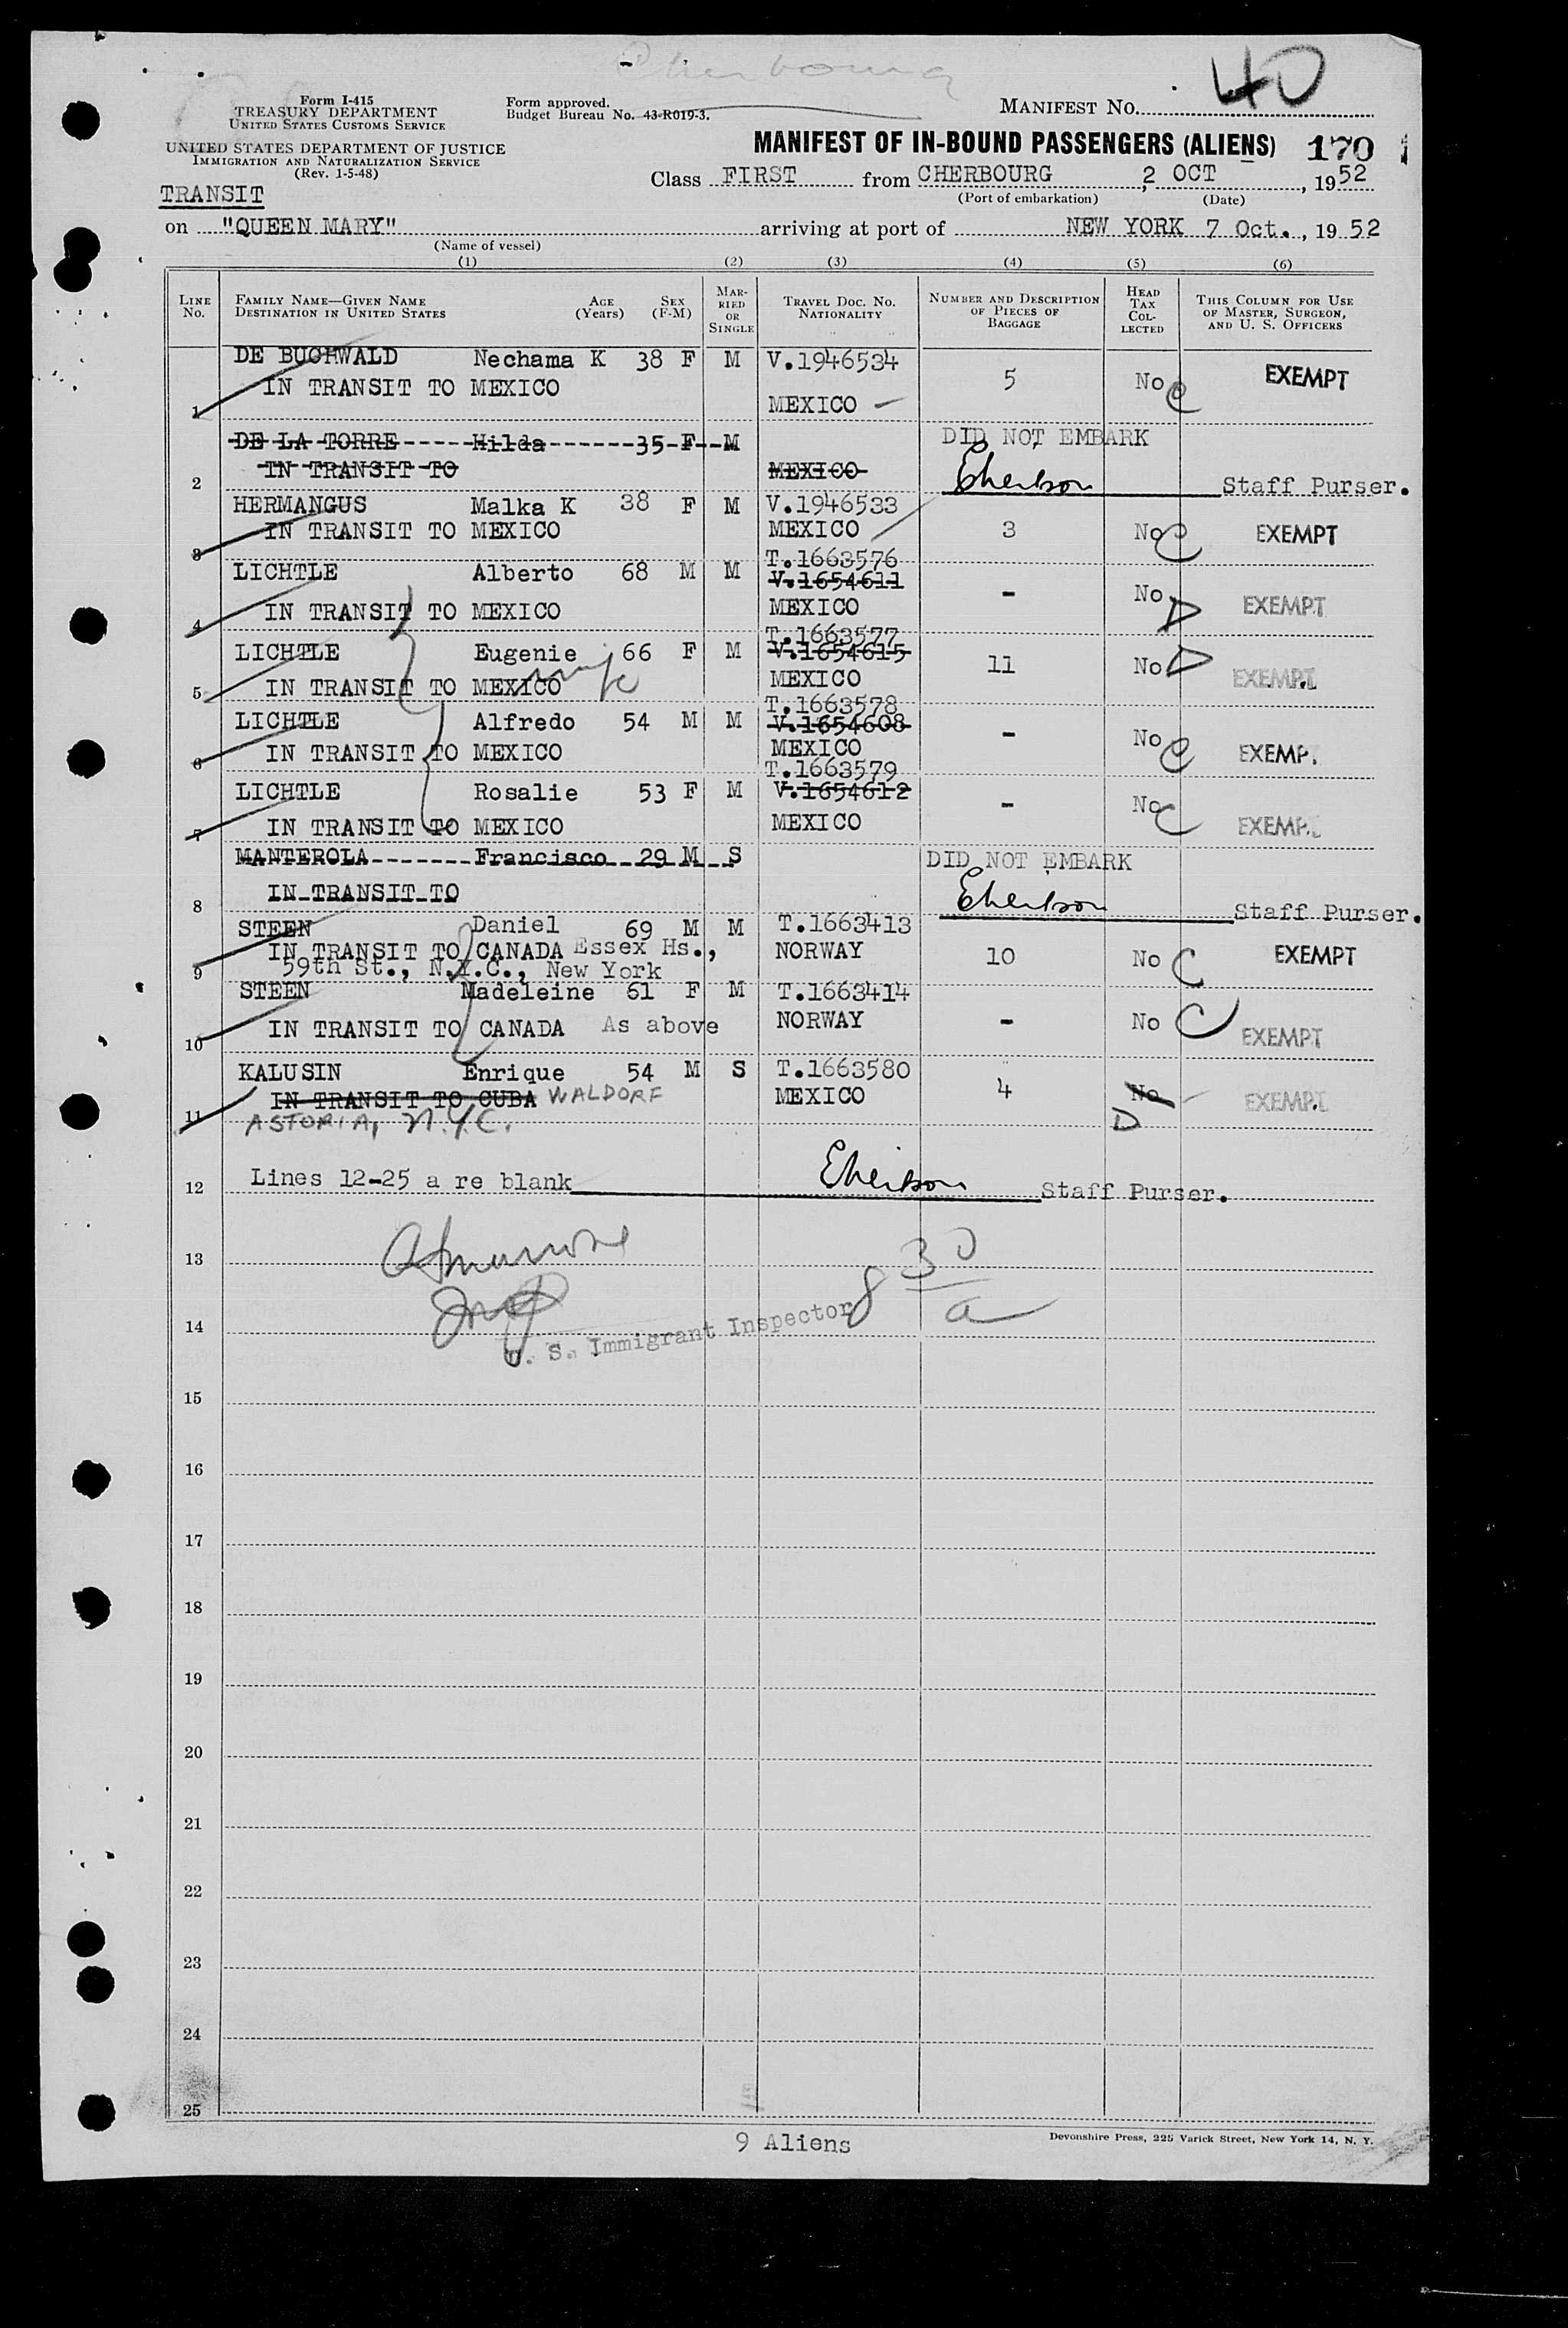 Cherbourg
40
Form I-415
TREASURY DEPARTMENT
UNITED STATES CUSTOMS SERVICE
Form approved.
Budget Bureau No. 43-R019-3.
MANIFEST NO.
UNITED STATES DEPARTMENT OF JUSTICE
IMMIGRATION AND NATURALIZATION SERVICE
(Rev. 1-5-48)
MANIFEST OF IN-BOUND PASSENGERS (ALIENS) 170
TRANSIT
Class FIRST from CHERBOURG, 2 OCT, 1952
(Port of embarkation) (Date)
on "QUEEN MARY" arriving at port of NEW YORK 7 Oct., 1952
(Name of vessel)
(1) (2) (3) (4) (5) (6)
LINE NO. FAMILY NAME—GIVEN NAME DESTINATION IN UNITED STATES AGE (Years) SEX (F-M) MARRIED OR SINGLE TRAVEL DOC. NO. NATIONALITY NUMBER AND DESCRIPTION OF PIECES OF BAGGAGE HEAD TAX COLLECTED THIS COLUMN FOR USE OF MASTER, SURGEON, AND U. S. OFFICERS
DE BUCHWALD Nechama K 38 F M V.1946534
IN TRANSIT TO MEXICO 5 No C EXEMPT
1 MEXICO
DE LA TORRE Hilda 35 F M DID NOT EMBARK
IN TRANSIT TO MEXICO
2 Staff Purser.
HERMANGUS Malka K 38 F M V.1946533
3 IN TRANSIT TO MEXICO MEXICO 3 No C EXEMPT
T.1663576
LICHTLE Alberto 68 M M V.1654611
4 IN TRANSIT TO MEXICO MEXICO - No D EXEMPT
T.1663577
LICHTLE Eugenie 66 F M V.1654615
5 IN TRANSIT TO MEXICO MEXICO 11 No D EXEMPT
T.1663578
LICHTLE Alfredo 54 M M V.1654608
6 IN TRANSIT TO MEXICO MEXICO - No C EXEMP.
T.1663579
LICHTLE Rosalie 53 F M V.1654612
7 IN TRANSIT TO MEXICO MEXICO - No C EXEMP.
MANTEROLA Francisco 29 M S DID NOT EMBARK
IN TRANSIT TO
8 Staff Purser.
STEEN Daniel 69 M M T.1663413
IN TRANSIT TO CANADA Essex Hs., NORWAY 10 No C EXEMPT
9 59th St., N.Y.C., New York
STEEN Madeleine 61 F M T.1663414
10 IN TRANSIT TO CANADA As above NORWAY - No C EXEMPT
KALUSIN Enrique 54 M S T.1663580
IN TRANSIT TO CUBA WALDORF MEXICO 4 No EXEMPT
11 ASTORIA, N.Y.C. D
12 Lines 12-25 a re blank Staff Purser.
13
8 30/a
14 U. S. Immigrant Inspector
15
16
17
18
19
20
21
22
23
24
25
9 Aliens
Devonshire Press, 225 Varick Street, New York 14, N. Y.